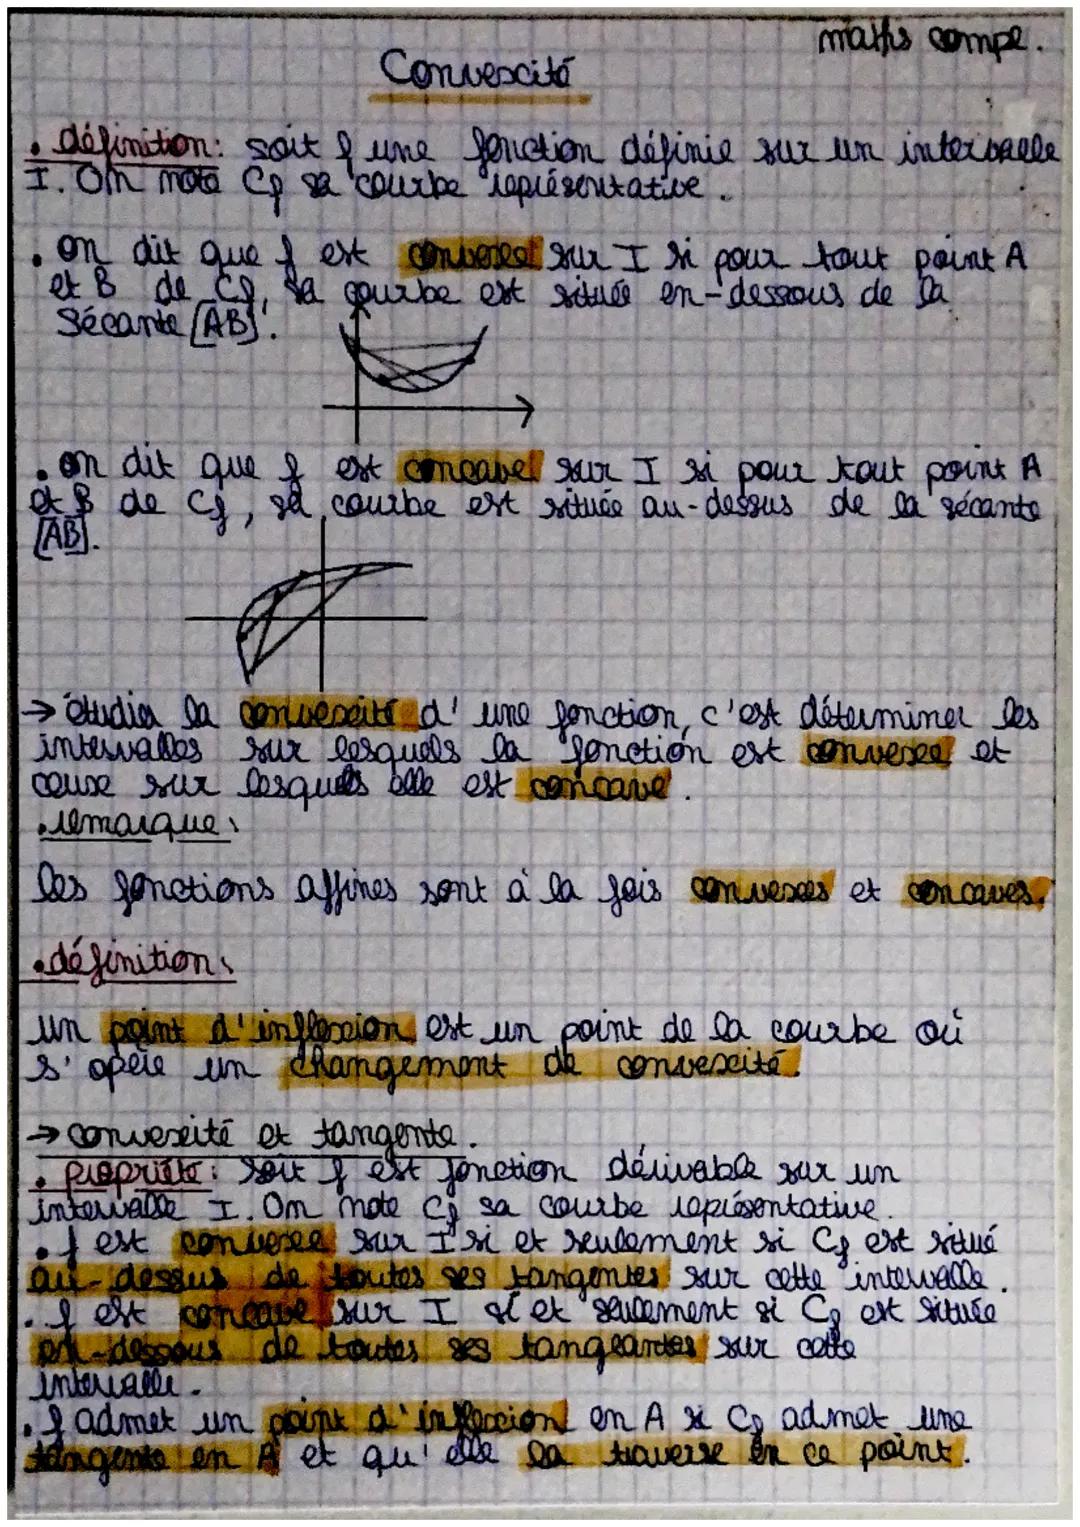 maths compe.
Convexité
. définition: soit f une fonction définie sur un intervalle
I. On note Cf sa courbe représentative.
. on dit que f est convexe sur I si pour tout point A
et B de Cf, sa courbe est située en-dessous de la
sécante [AB].
. on dit que f est concave sur I si pour tout point A
et B de Cf, sa courbe est située au-dessus de la sécante
[AB].
→ étudier la convexité d'une fonction, c'est déterminer les
intervalles sur lesquels la fonction est convexe et
ceux sur lesquels elle est concave.
. remarque:
les fonctions affines sont à la fois convexes et concaves.
. définition:
un point d'inflexion est un point de la courbe où
s'opère un changement de convexité.
→ convexité et tangente.
. propriété: soit f est fonction dérivable sur un
intervalle I. On note Cf sa courbe représentative.
. f est convexe sur I si et seulement si Cf est situé
au-dessus de toutes ses tangentes sur cette intervalle.
. f est concave sur I si et seulement si Cf est située
en-dessous de toutes ses tangeantes sur cette
intervalle.
. f admet un point d'inflexion en A si Cf admet une
tangente en A et qu'elle la traverse en ce point.